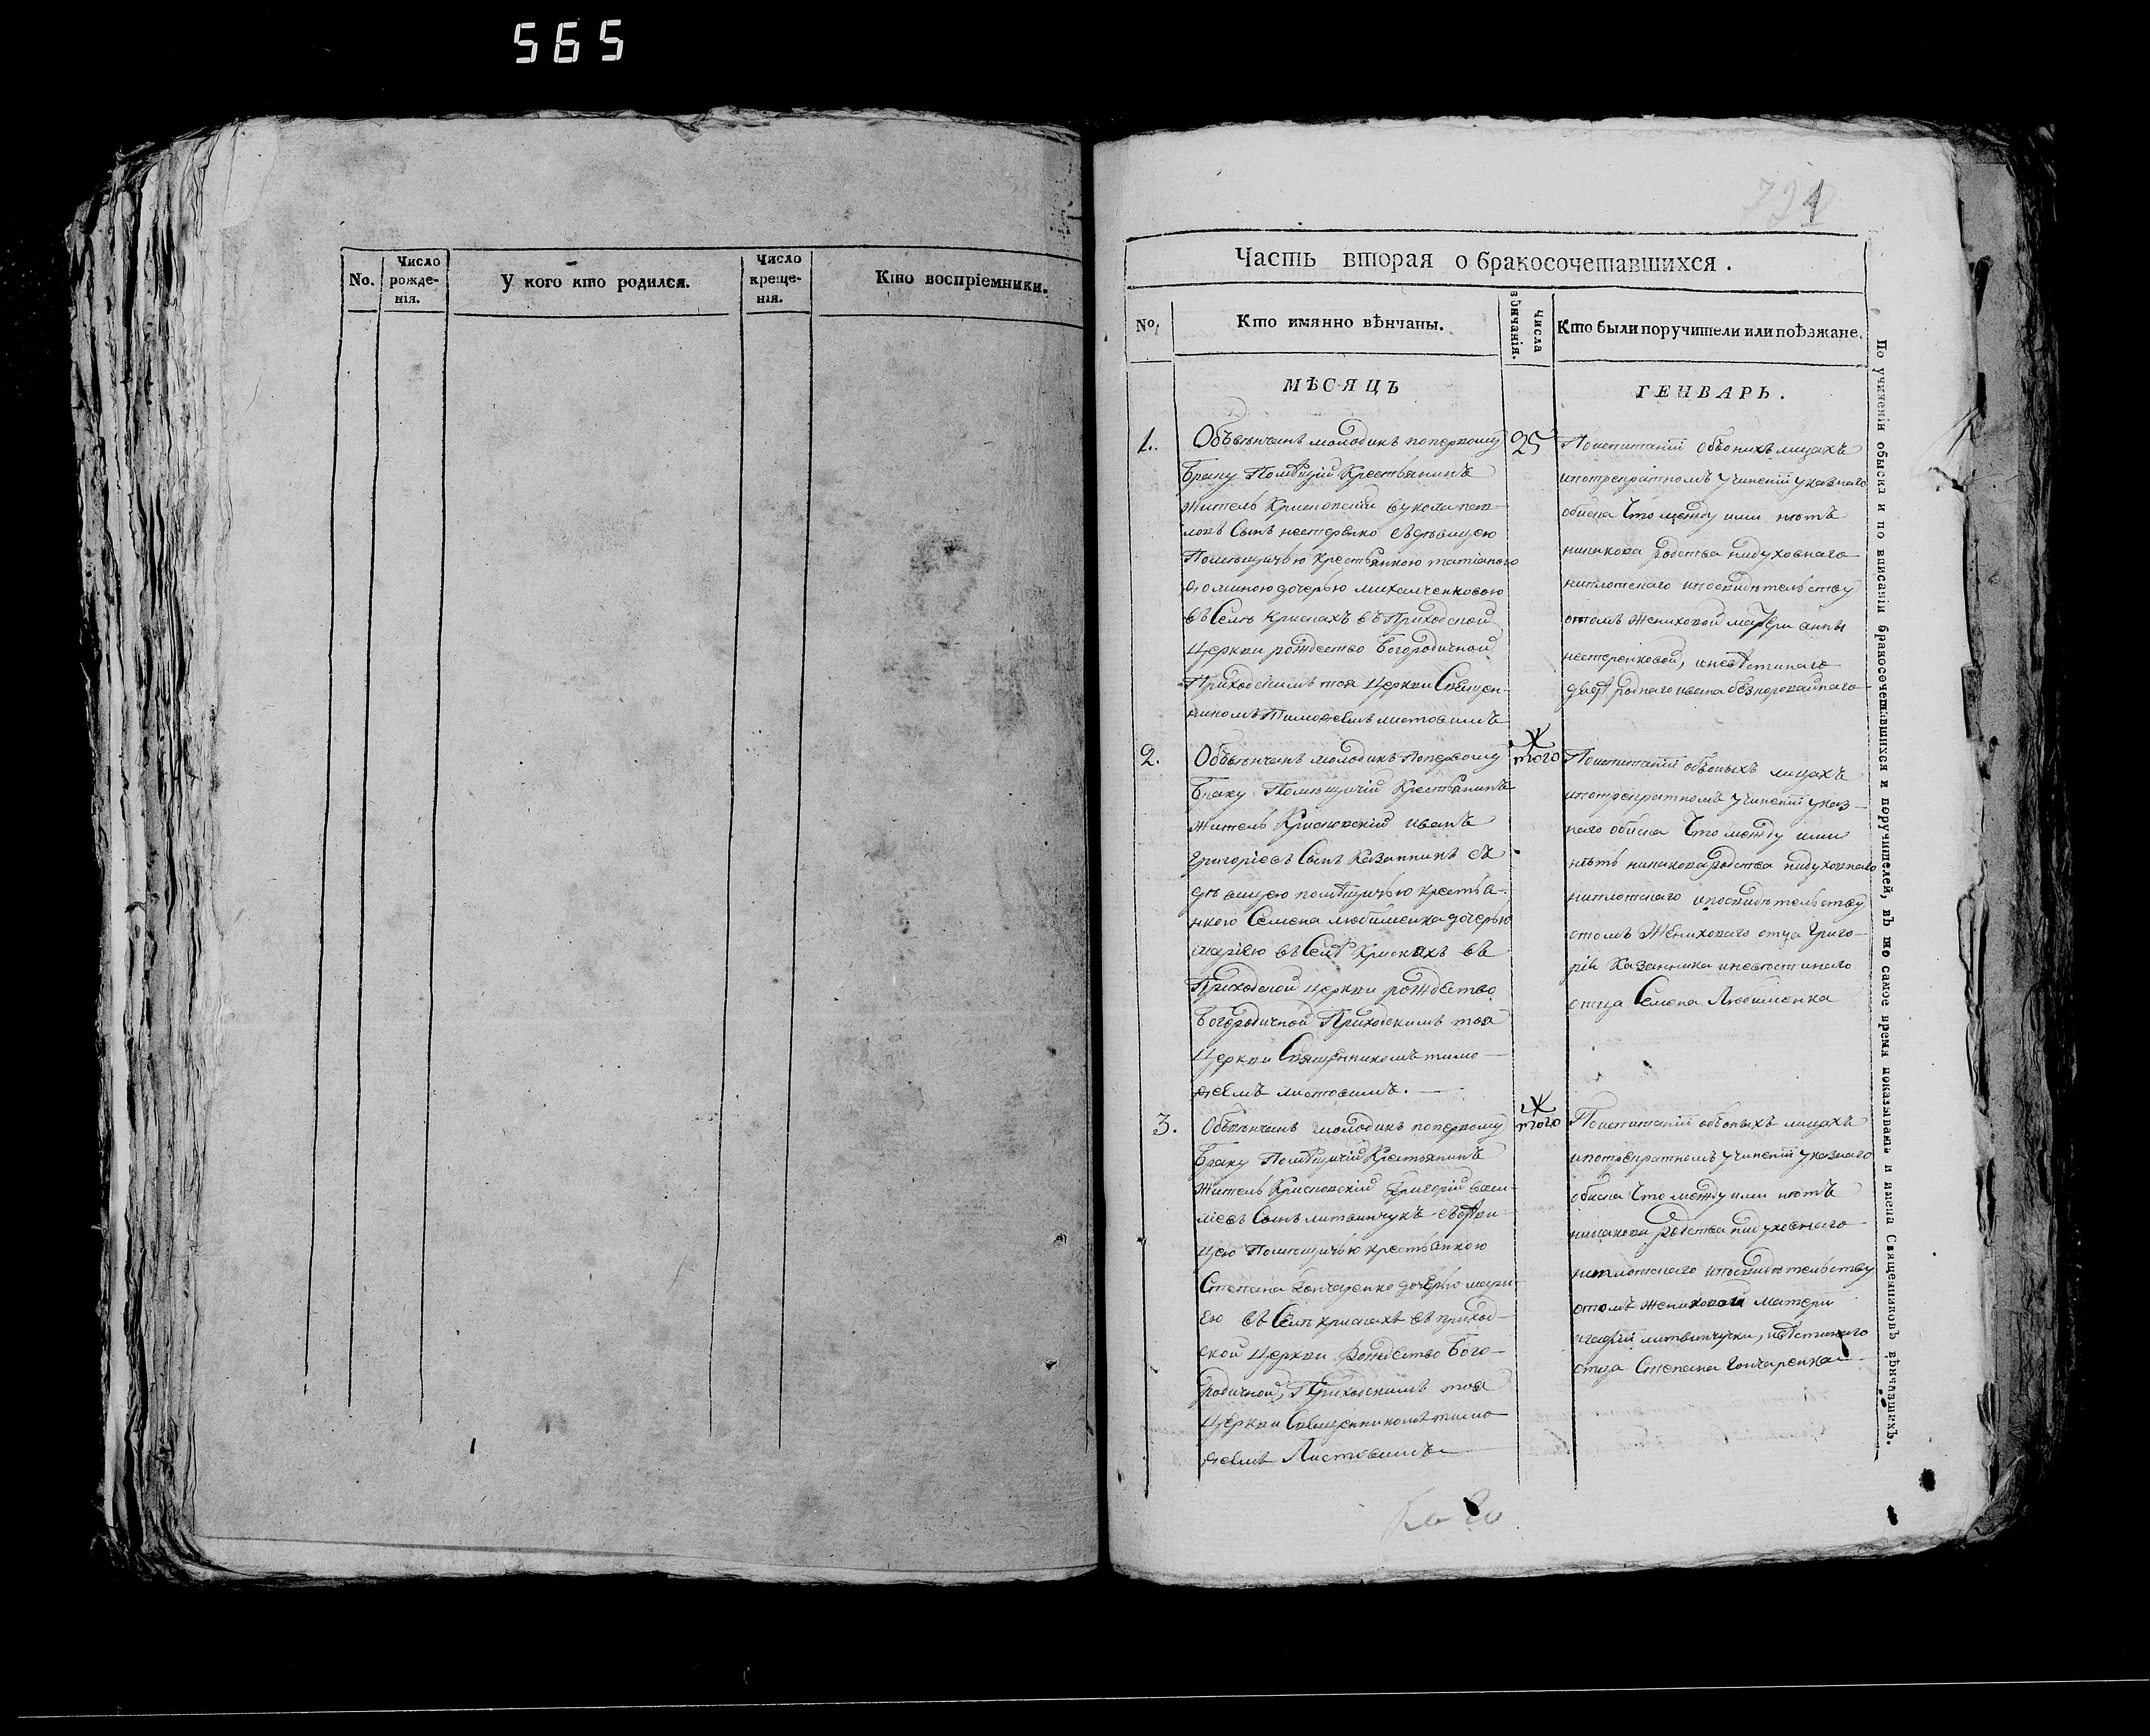 565
No.
Число рожде- нія.
У кого кто родился.
Число креще- нія.
Кто воспріемники.
Часть вторая о бракосочетавшихся.
No.
Кто имянно вѣнчаны.
Числа вѣнчанія.
Кто были поручители или поѣзжане.
МѢСЯЦЪ
ГЕНВАРЬ.
1.
Обвѣнчанъ молодикъ поперьвому
браку Помѣщичій Крестьянинъ
житель Крисковскій вукола пав-
ловъ Сынъ нестеренко съдѣвицею
Помѣщичью крестьянкою татіаною
ѳоминою дочерью михалченковою
въ Селѣ Крискахъ въ Приходской
Церкви рождество Богородичной
Приходскимъ тоя Церкви Священ-
никомъ Тимоѳеемъ листовимъ
25
Поиспитаніи объ онихъ лицахъ
ипотрекратномъ учиненіи указнаго
обиска Что между ими нѣтъ
никакова родства нидуховнаго
ниплотскаго ипосвидѣтельству
отомъ Жениховой матери анны
нестеренковой, иневѣстинаго
2.
Обвѣнчанъ молодикъ Поперьвому
браку Помѣщичій Крестьянинъ
житель Крисковскій иванъ
Григоріевъ Сынъ Казанникъ съ
дѣвицею помѣщичью крестья-
нкою Семена любименка дочерью
маріею въ Селѣ Крискахъ въ
Приходской церкви рождество
Богородичной Приходскимъ тоя
Церкви Священникомъ тимо-
ѳеемъ листовимъ.
того
Поиспитаніи объоныхъ лицахъ
ипотрекратномъ учиненіи указ-
наго обиска Что между ими
нѣтъ никакова родства нидуховнаго
ниплотскаго ипосвидѣтельству
отомъ Жениховаго отца Григо-
рія Казанника иневѣстинаго
отца Семена Любименка
3.
Обвѣнчанъ молодикъ поперьвому
браку Помѣщичій Крестьянинъ
житель Крисковскій Григорій васи-
ліевъ Сынъ литвинчукъ съдѣви-
цею Помѣщичью крестьянкою
Степана Гончаренко дочерью мари-
ею въ Селѣ крискахъ въ приход-
ской Церкви Рождество Бого-
родичной, Приходскимъ тоя
Церкви Священникомъ тимо
ѳеемъ Листовимъ
того
Поиспитаніи объоныхъ лицахъ
ипотрекратномъ учиненіи указнаго
обиска Что между ими нѣтъ
никакова родства нидуховнаго
ниплотскаго ипосвидѣтельству
отомъ жениховой матери
агафіи литвинчучки, невѣстинаго
отца Степана Гончаренка
По учиненіи обыска и по вписаніи бракосочетавшихся и поручителей, въ то самое время показывать и имена Священниковъ вѣнчавшихъ.